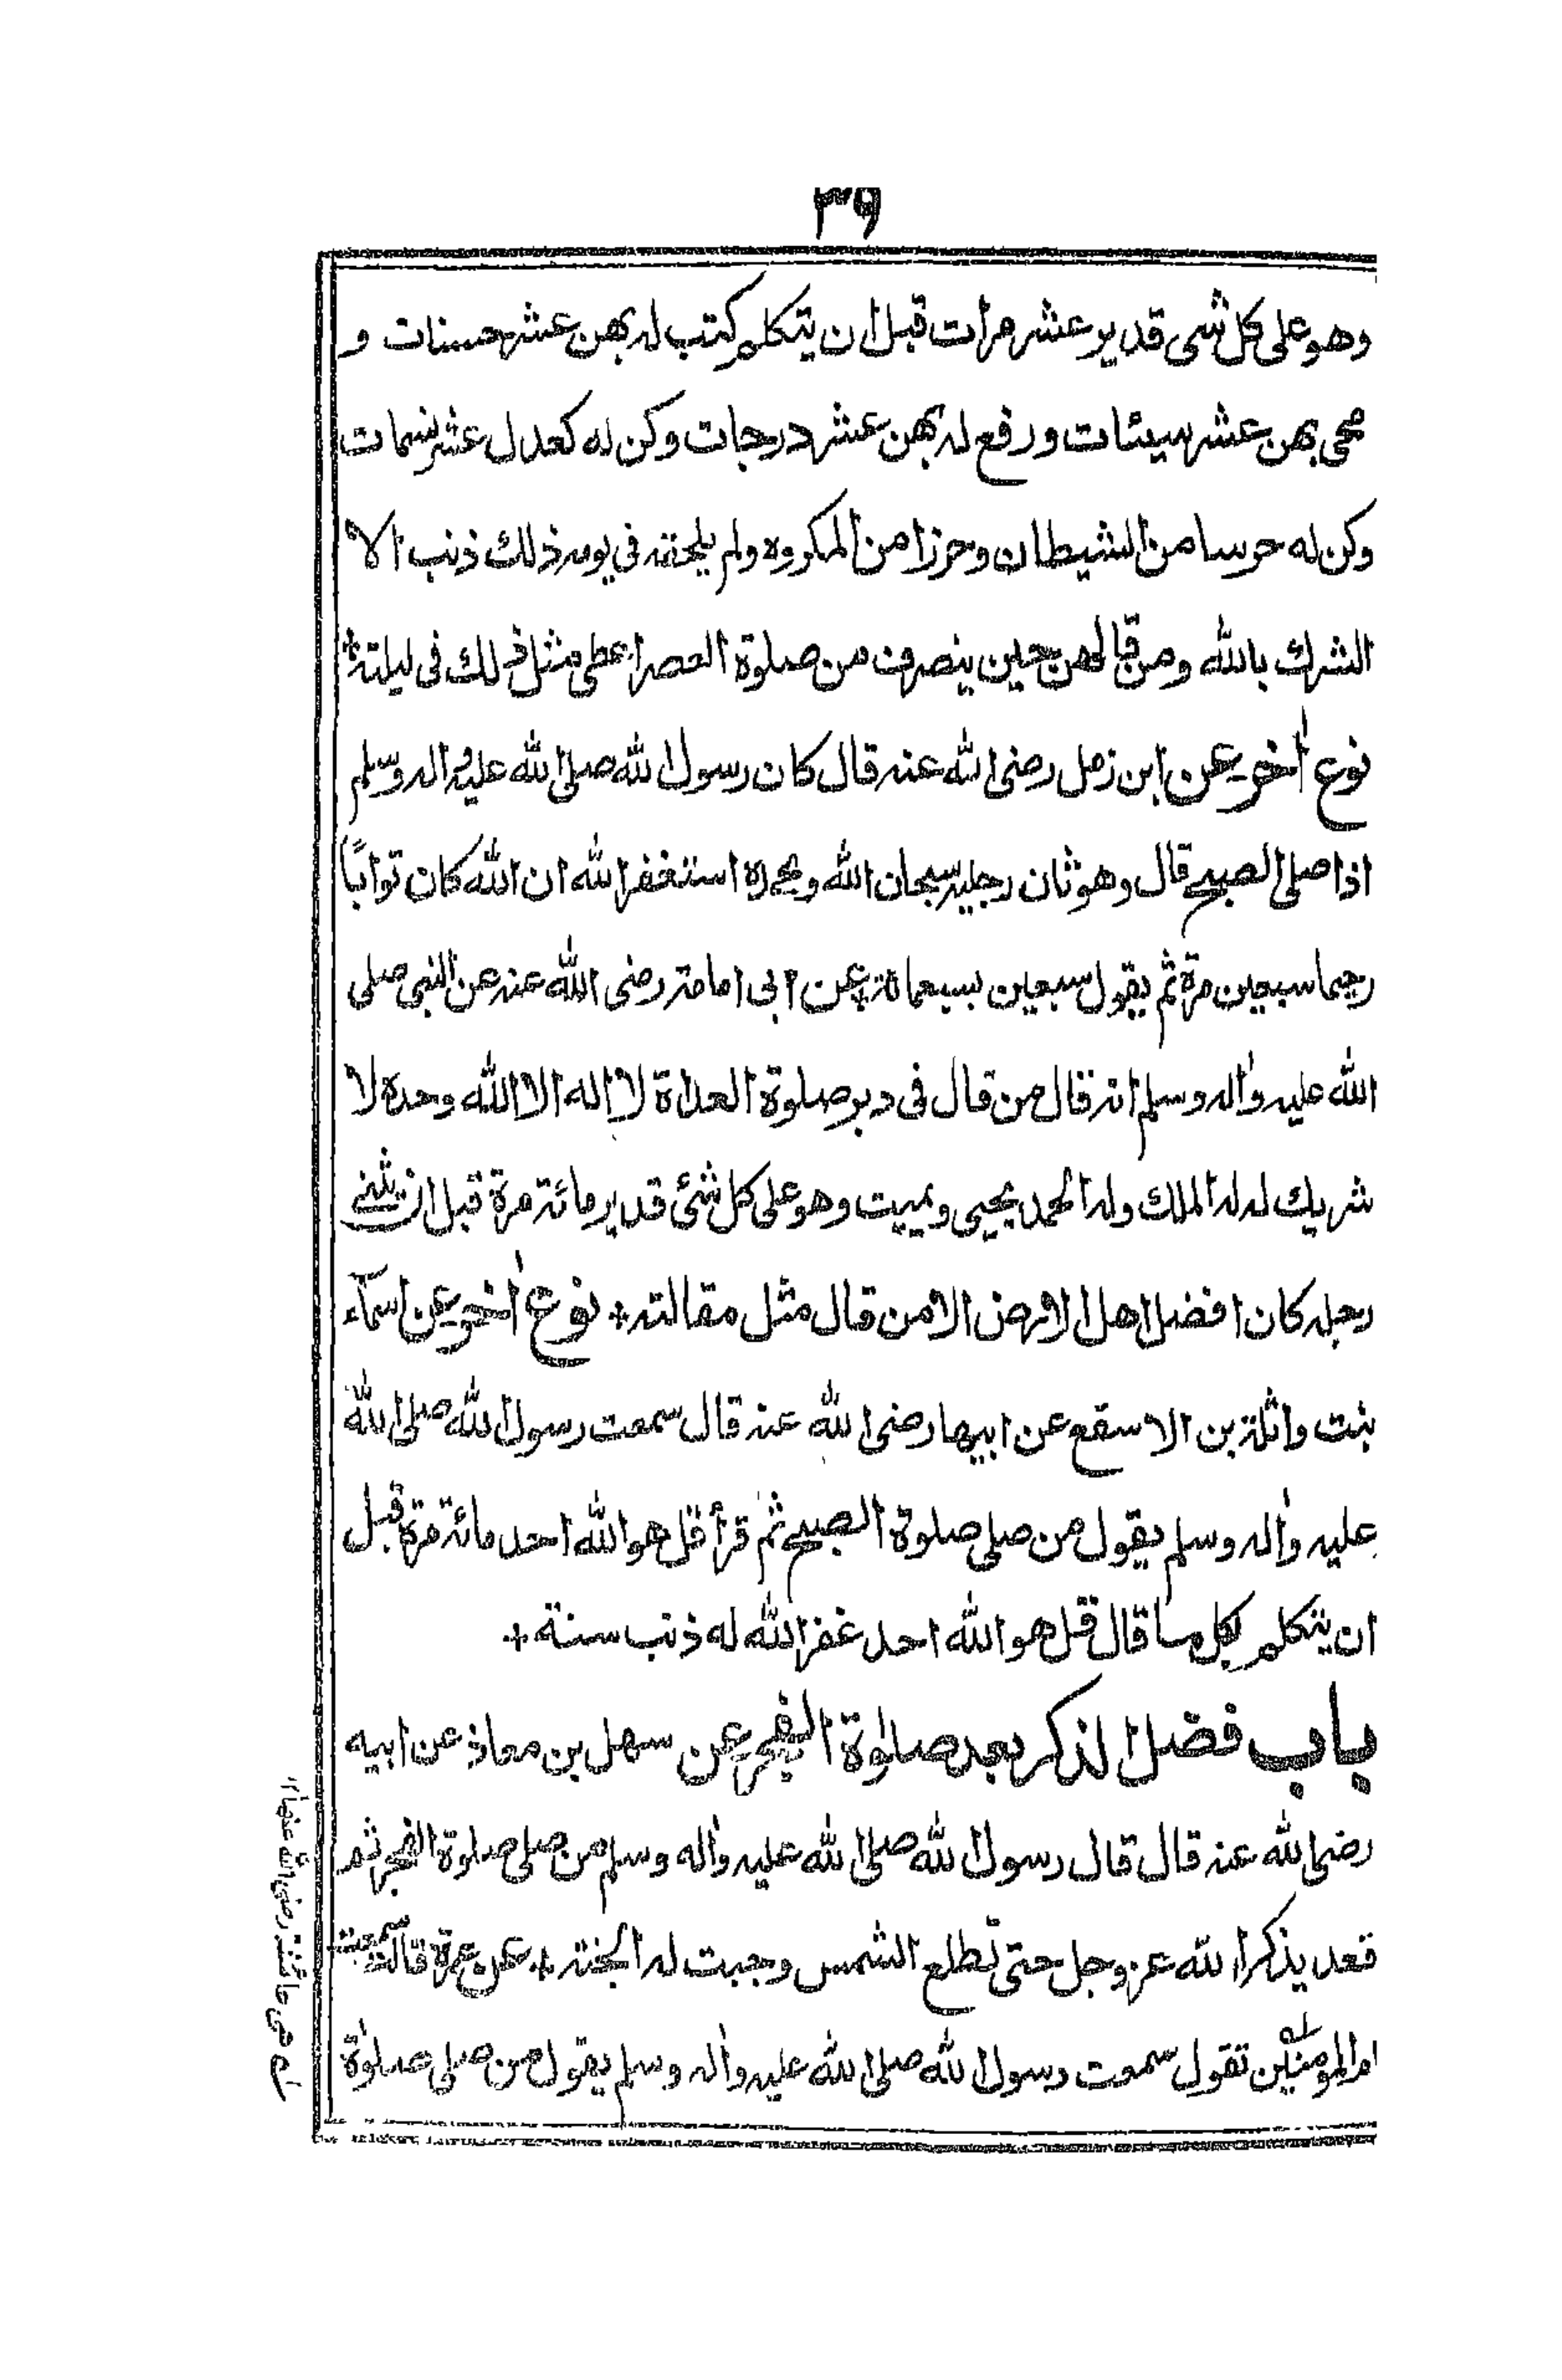 ٣٩
وهو على كل شى قدير عشر مرات قبل ان يتكلم كتب له بهن عشر حسنات و
محى بهن عشر سيئات ورفع له بهن عشر درجات وكن له كعدل عشر نسمات
وكن له حرسا من الشيطان وحرزا من المكروه ولم يلحقه فى يومه ذلك ذنب الا
الشرك بالله ومن قالهن حين ينصرف من صلوة العصر اعطى مثل ذلك فى ليلته *
نوع اٰخر عن ابن زمل رضى الله عنه قال كان رسول الله صلى الله عليه واله وسلم
اذا صلى الصبح قال وهو ثان رجليه سبحان الله وبحمده استغفر الله ان الله كان توابًا
رحيما سبعين مرة ثم يقول سبعين بسبعمائة * عن ابى امامة رضى الله عنه عن النبى صلى
الله عليه واٰله وسلم انه قال من قال فى دبر صلوة الغداة لا اله الا الله وحده لا
شريك له له الملك وله الحمد يحيى ويميت وهو على كل شئ قدير مائة مرة قبل ان يثنى
رجله كان افضل اهل الارض الا من قال مثل مقالته * نوع اٰخر عن اسمآء
بنت واثلة بن الاسقع عن ابيها رضى الله عنه قال سمعت رسول الله صلى الله
عليه واٰله وسلم يقول من صلى صلوة الصبح ثم قرأ قل هو الله احد مائة مرة قبل
ان يتكلم لكل ما قال قل هو الله احد غفر الله له ذنب سنة *
باب فضل الذكر بعد صلوٰة الفجر عن سهل بن معاذ عن ابيه
رضى الله عنه قال قال رسول الله صلى الله عليه واٰله وسلم من صلى صلوة الفجر ثم
قعد يذكر الله عز وجل حتى تطلع الشمس وجبت له الجنة * عن عمرة قالت سمعت
ام المومنين تقول سمعت رسول الله صلى الله عليه واٰله وسلم يقول من صلى صلوٰة
له هى عائشة رضى الله عنها ١٢